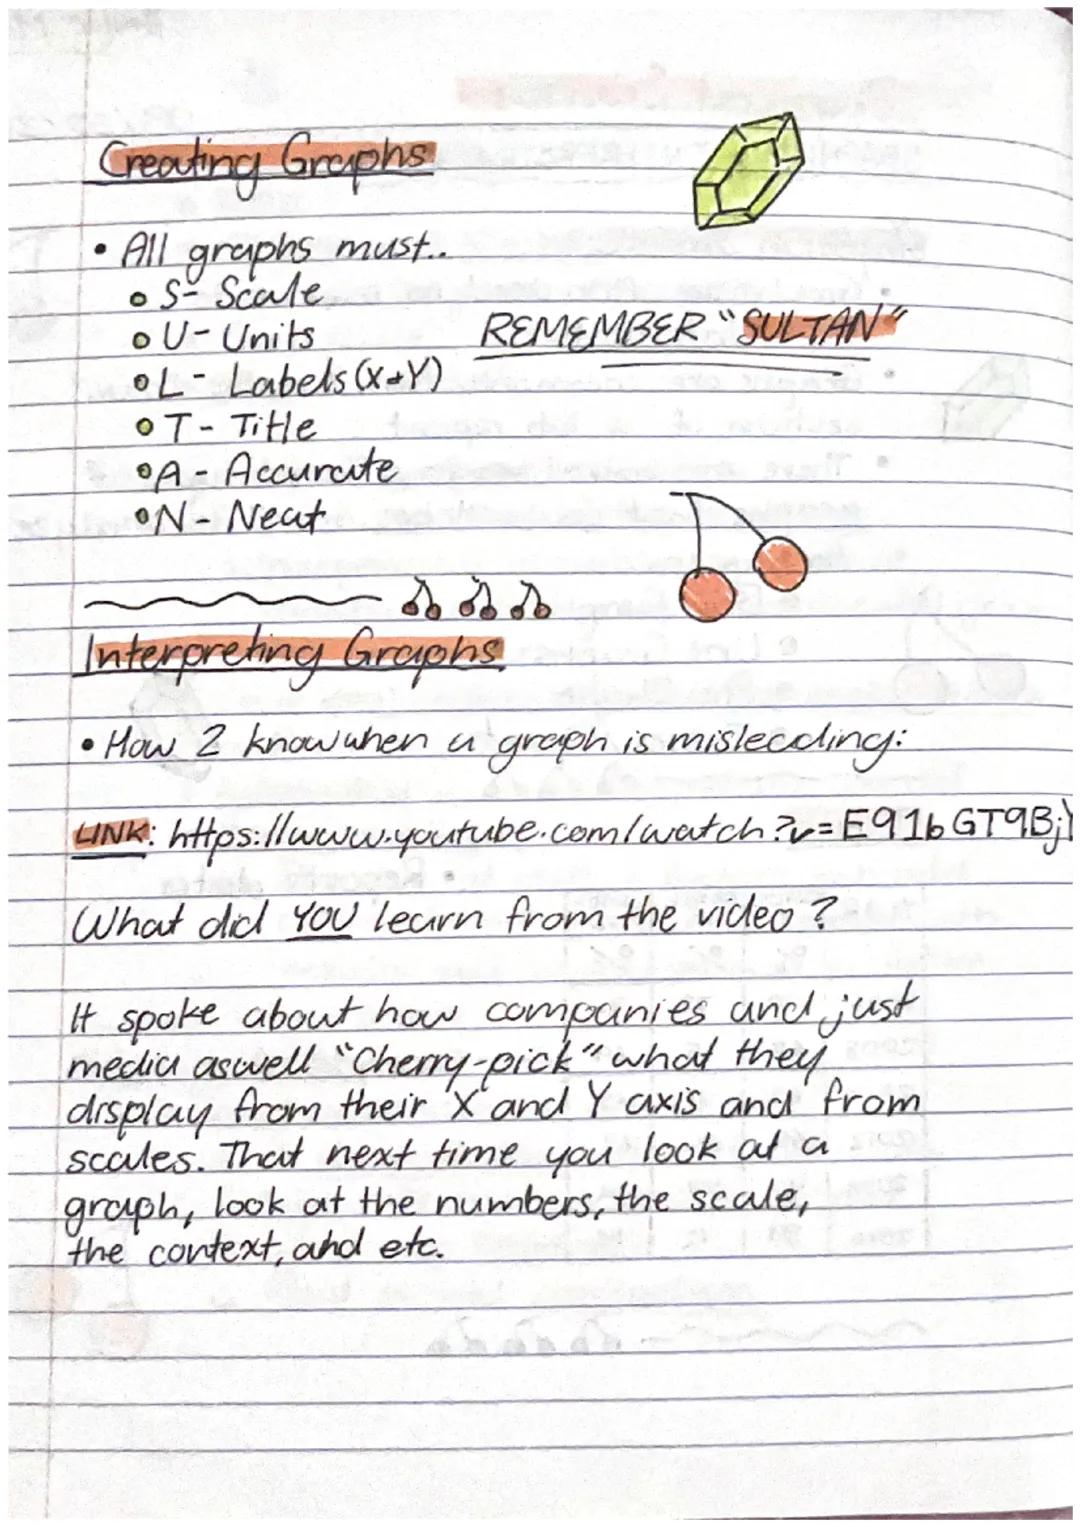 Creating Graphs
• All graphs must..
• S- Scale
• U- Units
REMEMBER "SULTAN"
• L- Labels (X+Y)
• T- Title
• A- Accurate
• N- Neat
Interpreting Graphs
• How 2 know when a graph is misleading:
LINK: https://www.youtube.com/watch?v=E91bGT9BjY
What did YOU learn from the video?
It spoke about how companies and just
media aswell "Cherry-pick" what they
display from their X and Y axis and from
scales. That next time you look at a
graph, look at the numbers, the scale,
the context, and etc.